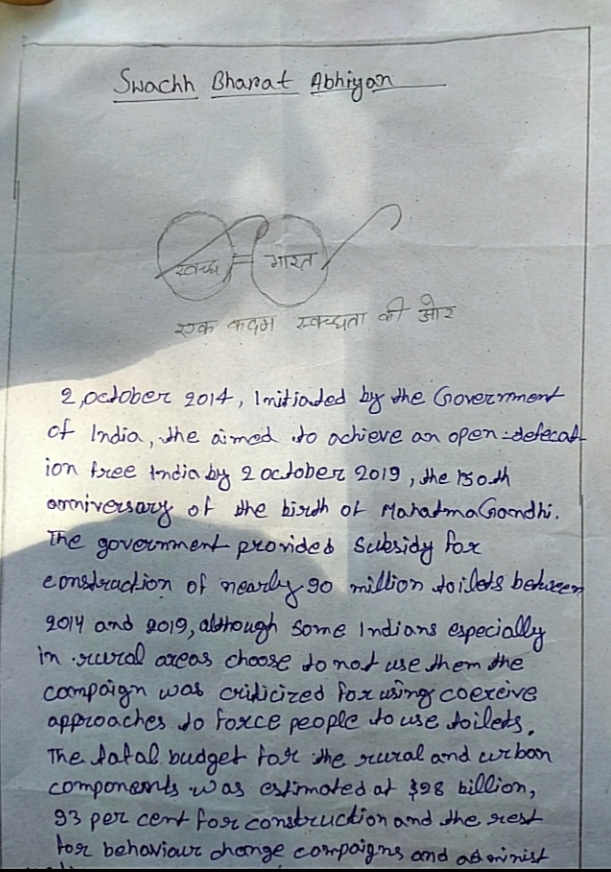 Swachh Bharat Abhiyan
स्वच्छ भारत
एक कदम स्वच्छता की ओर
2, october 2014, Initiated by the Government
of India, the aimed to achieve an open-defecat
ion free India by 2 october 2019, the 150th
anniversary of the birth of Mahatma Gandhi.
The government provided subsidy for
construction of nearly 90 million toilets between
2014 and 2019, although some Indians especially
in rural areas choose to not use them the
campaign was criticized for using coercive
approaches to force people to use toilets.
The total budget for the rural and urban
components was estimated at $28 billion,
93 per cent for construction and the rest
for behaviour change campaigns and administ